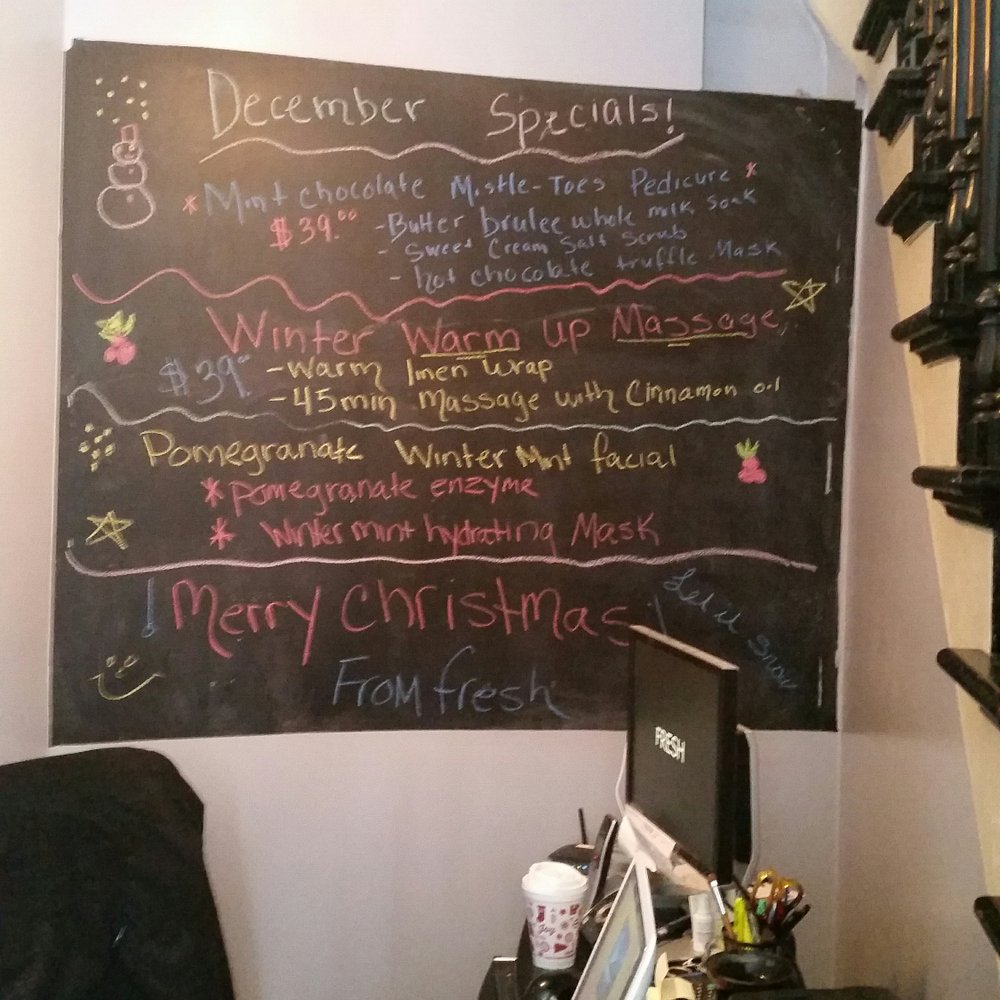 December Specials!
* Mint chocolate Mistle-Toes Pedicure *
$39.00 - Butter brulee whole milk soak
- Sweet Cream Salt Scrub
- hot chocolate truffle Mask
Winter Warm up Massage
$39.00 - Warm linen wrap
- 45 min Massage with Cinnamon oil
Pomegranate Winter Mint facial
* pomegranate enzyme
* Winter mint hydrating Mask
Merry Christmas!
Let it Snow
From fresh
FRESH
Joy